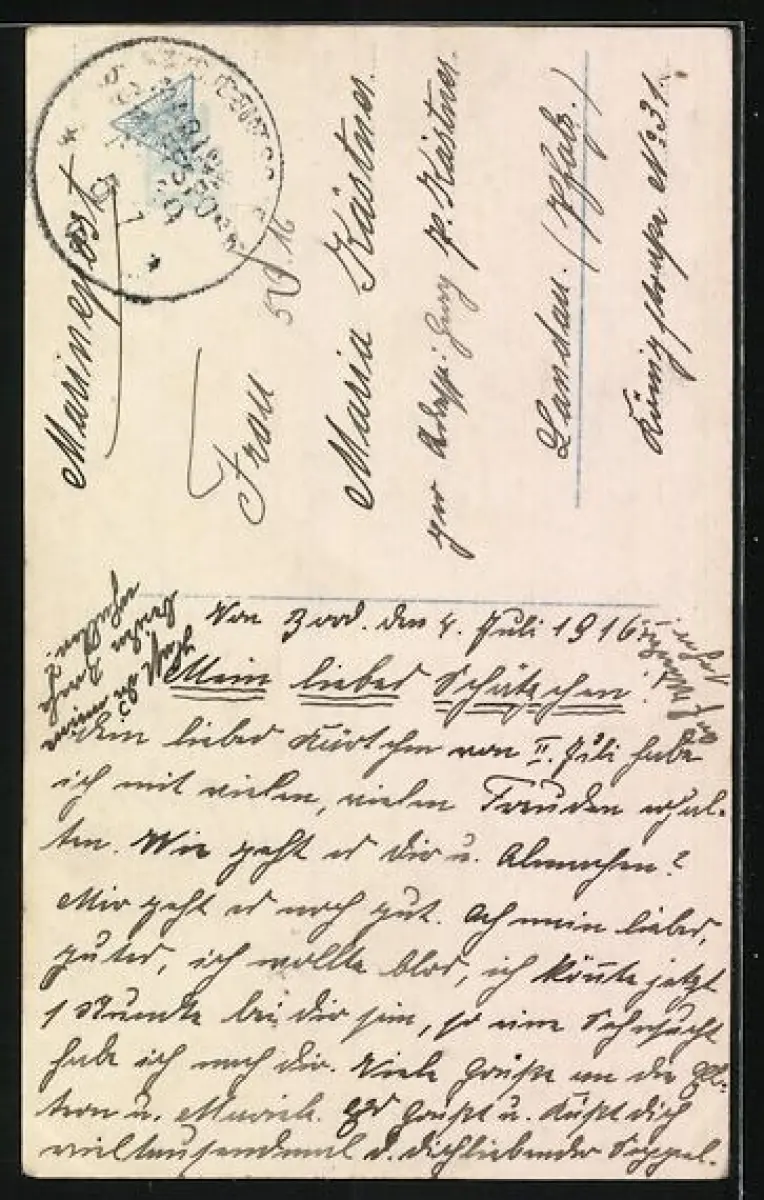 Marinepost
Frau
5.7.16
Maria Kästner.
per Adresse: Georg H. Kästner.
Landau. (Pfalz.)
Königstraße No 31.
Von Bord. den 4. Juli 1916.
Mein liebes Schätzchen!
Dein liebes Kärtchen von II. Juli habe
ich mit vielen, vielen Freuden erhal-
ten. Wie geht es dir u.
Mir geht es noch gut. Ach mein liebes,
gutes, ich wollte blos, ich könnte jetzt
1 Stunde bei dir sein, so eine Sehnsucht
habe ich nach dir. Viele Grüße an die El-
tern u. Es grüßt u. küßt dich
vieltausendmal d. dichliebender Seppel.